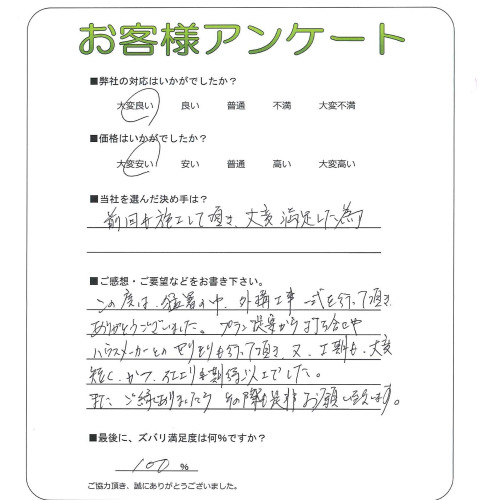 お客様アンケート
■弊社の対応はいかがでしたか?
大変良い 良い 普通 不満 大変不満
■価格はいかがでしたか?
大変安い 安い 普通 高い 大変高い
■当社を選んだ決め手は?
前回も施工して頂き、大変満足した為
■ご感想・ご要望などをお書き下さい。
この度は、猛暑の中、外構工事一式を行って頂き
ありがとうございました。プラン提案から打ち合せや
ハウスメーカーとのやりとりも行って頂き、又、工期も、大変
短く、かつ、仕上りも期待以上でした。
また、ご縁ありましたら その際も是非お願い致します。
■最後に、ズバリ満足度は何%ですか?
100 %
ご協力頂き、誠にありがとうございました。